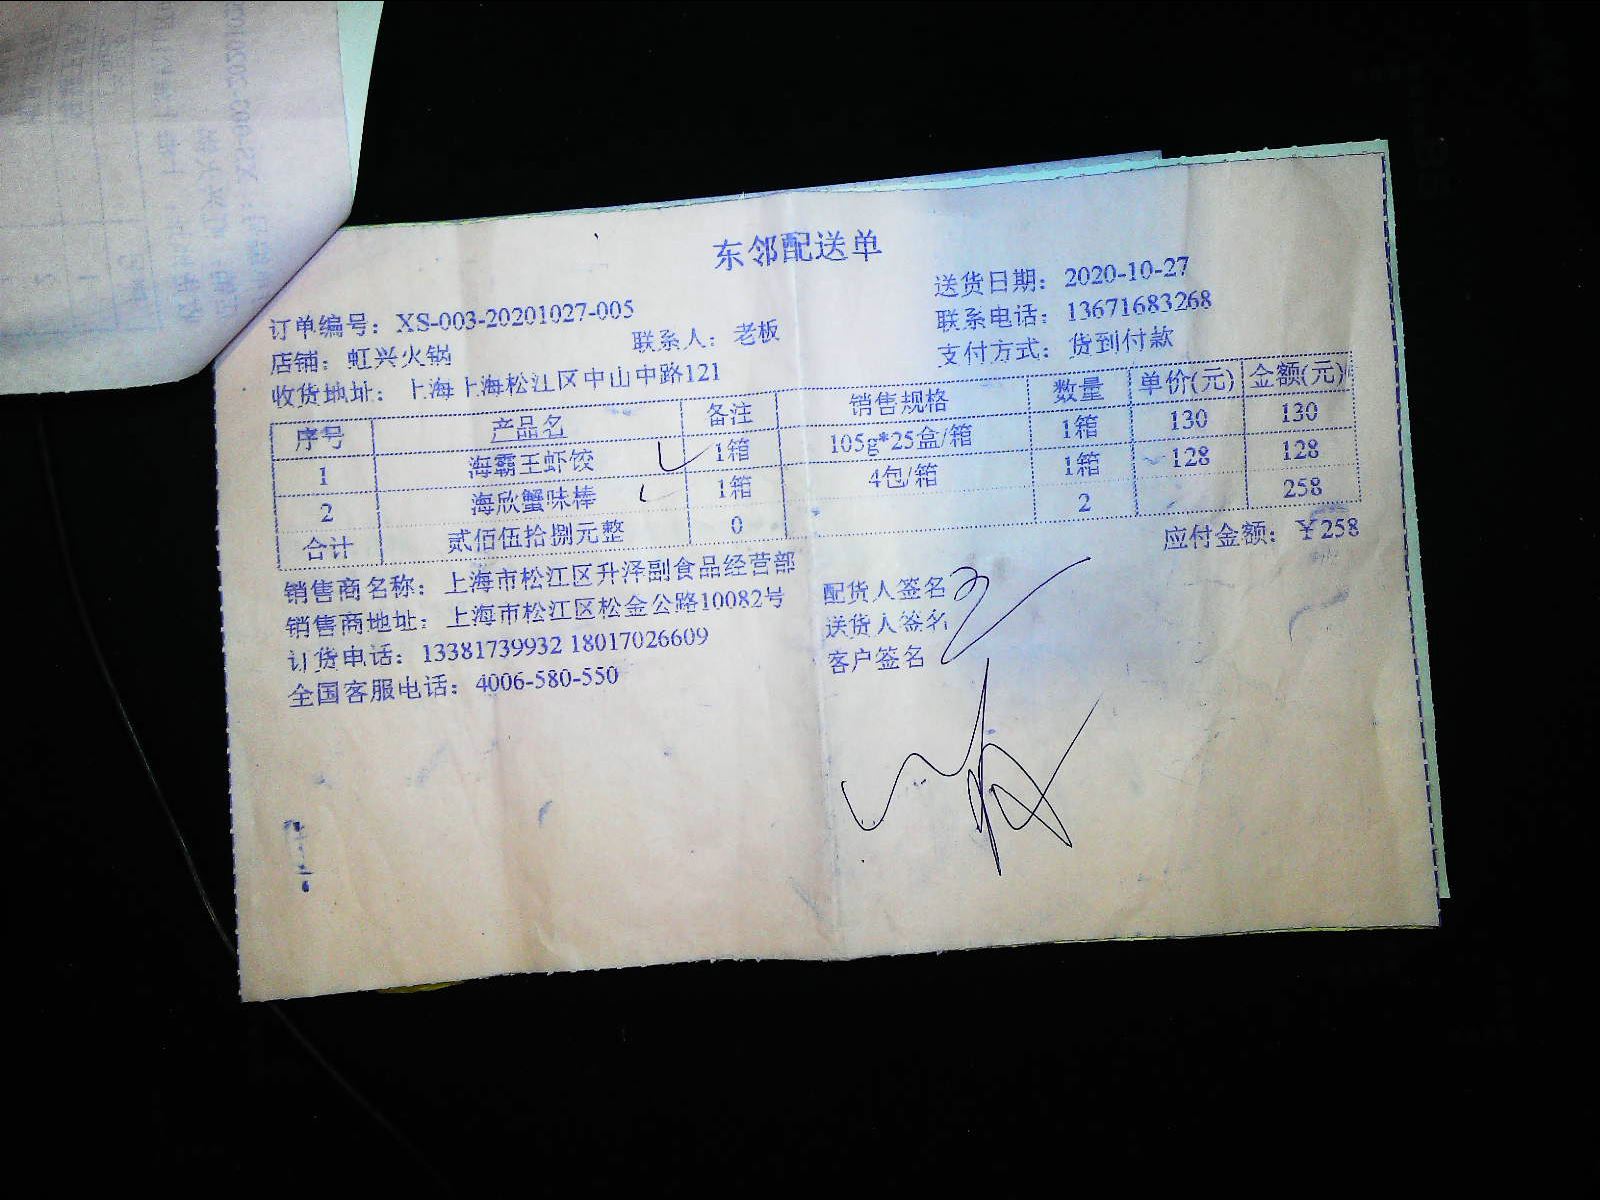 东邻配送单
送货日期：2020-10-27
订单编号：XS-003-20201027-005
联系电话：13671683268
店铺：虹兴火锅 联系人：老板
支付方式：货到付款
收货地址：上海上海松江区中山中路121
序号 产品名 备注 销售规格 数量 单价(元) 金额(元)
1 海霸王虾饺 1箱 105g*25盒/箱 1箱 130 130
2 海欣蟹味棒 1箱 4包/箱 1箱 128 128
合计 贰佰伍拾捌元整 0 2 258
应付金额：￥258
销售商名称：上海市松江区升泽副食品经营部
销售商地址：上海市松江区松金公路10082号
订货电话：13381739932 18017026609
全国客服电话：4006-580-550
配货人签名
送货人签名
客户签名